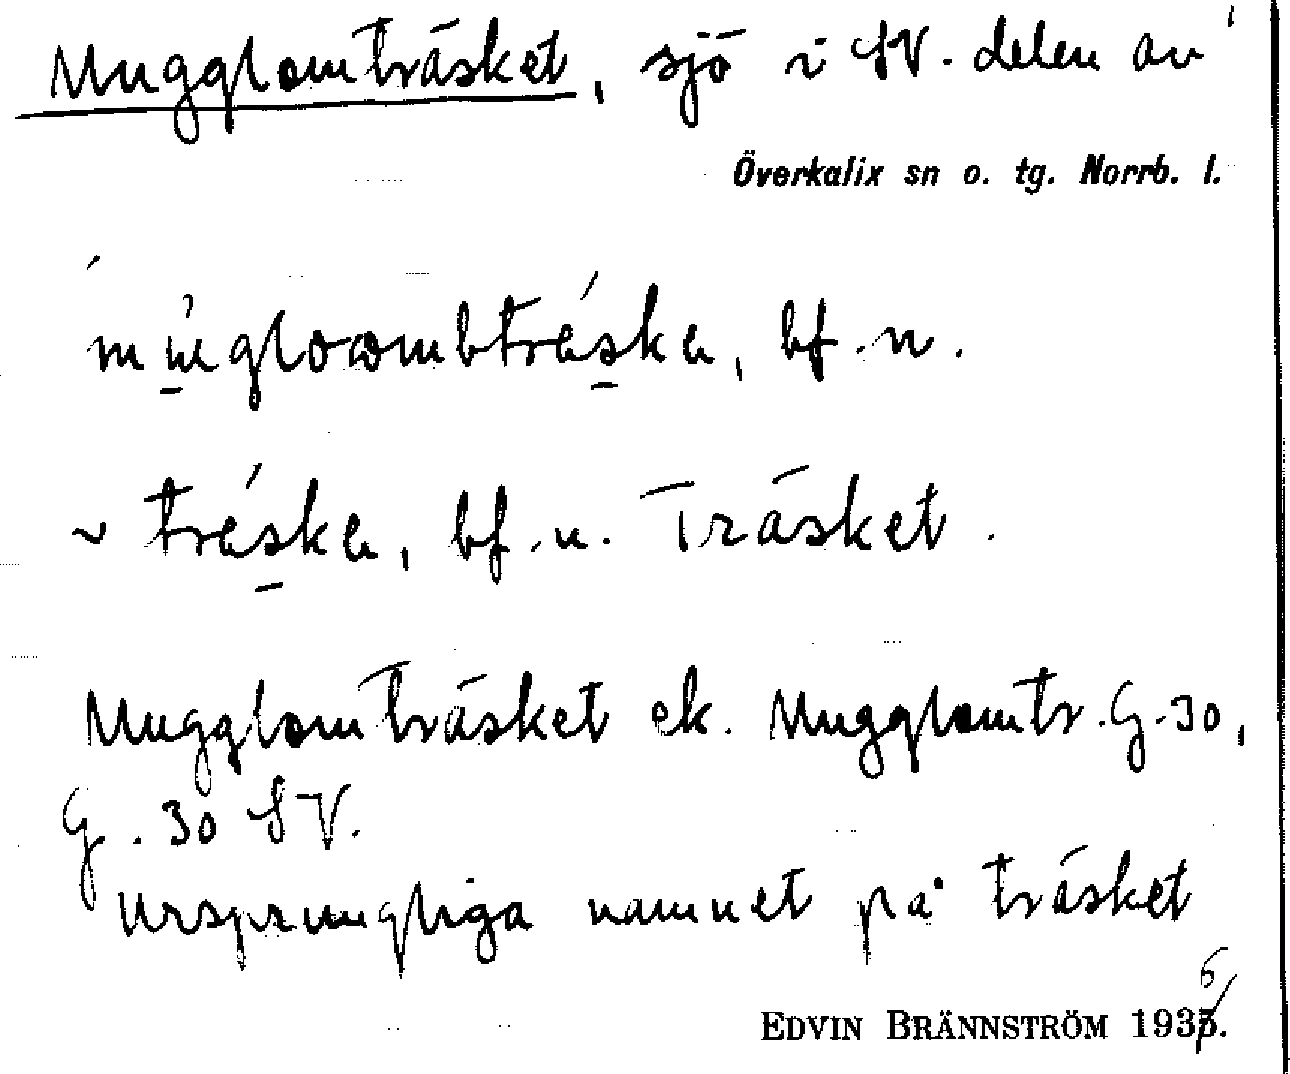 Mugglomträsket, sjö i SV. delen av
Överkalix sn o. tg. Norrb. l.
bf. n.
~ bf. n. Träsket.
Mugglomträsket ek. Mugglomtr. G.30,
G.30 SV.
Ursprungliga namnet på träsket
EDVIN BRÄNNSTRÖM 1936.